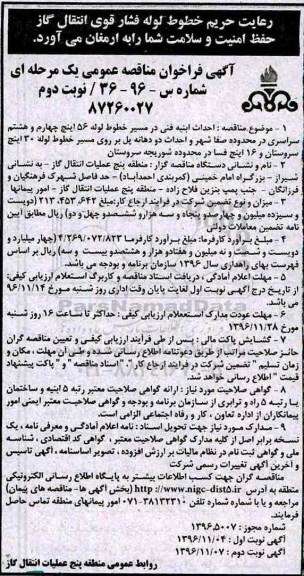 رعایت حریم خطوط لوله فشار قوی انتقال گاز
حفظ امنیت و سلامت شما رابه ارمغان می آورد.
آگهی فراخوان مناقصه عمومی یک مرحله ای
شماره س - ۹۶ - ۳۶ / نوبت دوم
۸۷۲۶۰۰۲۷
۱ - موضوع مناقصه : احداث ابنیه فنی در مسیر خطوط لوله ۵۶ اینچ چهارم و هشتم
سراسری در محدوده صفا شهر و احداث دو دهانه پل بر روی مسیر خطوط لوله ۳۰ اینچ
سروستان و ۱۶ اینچ فسا در محدوده شوریجه سروستان
۲ - نام و نشانی دستگاه مناقصه گزار : منطقه پنج عملیات انتقال گاز - به نشانی
شیراز - بزرگراه امام خمینی (کمربندی احمدآباد) - حد فاصل شهرک فرهنگیان و
فرزانگان - جنب پمپ بنزین فلاح زاده - منطقه پنج عملیات انتقال گاز - امور پیمانها
۳ - میزان و نوع تضمین شرکت در فرایند ارجاع کار:مبلغ ۲۱۳,۴۵۳,۶۴۲ (دویست
و سیزده میلیون و چهارصدو پنجاه و سه هزار و ششصدو چهل و دو) ریال مطابق آیین
نامه تضمین معاملات دولتی
۴ - مبلغ برآورد کارفرما: مبلغ برآورد کارفرما ۴/۲۶۹/۰۷۲/۸۲۳ (چهار میلیارد و
دویست و شصت و نه میلیون و هفتادو دو هزار و هشتصدو بیست و سه) ریال بر اساس
فهرست بهای راهداری سال ۱۳۹۶ سازمان برنامه و بودجه می باشد.
۵ - مهلت اعلام آمادگی ، دریافت اسناد مناقصه و کاربرگ استعلام ارزیابی کیفی:
از تاریخ درج آگهی نوبت اول لغایت پایان وقت اداری روز شنبه مورخ ۹۶/۱۱/۱۴
می باشد.
۶ - مهلت عودت مدارک استعلام ارزیابی کیفی : حداکثر تا ساعت ۱۶ روز شنبه
مورخ ۱۳۹۶/۱۱/۲۸
۷ - گشایش پاکت مالی : پس از طی فرآیند ارزیابی کیفی و تعیین مناقصه گران
حائز صلاحیت مراتب از طریق دعوتنامه اطلاع رسانی شده و طی آن مهلت ، مکان و
زمان تسلیم " تضمین شرکت در فرایند ارجاع کار" ، "اسناد مناقصه "و " پاکت پیشنهاد
قیمت " اطلاع رسانی خواهد شد.
۸ - گواهی صلاحیت مورد نیاز : ارائه گواهی صلاحیت معتبر رتبه ۵ ابنیه و ساختمان
یا رتبه ۵ راه و ترابری از سازمان برنامه و بودجه و گواهی صلاحیت معتبر ایمنی امور
پیمانکاران از اداره تعاون ، کار و رفاه اجتماعی الزامی است.
۹ - مدارک مورد نیاز جهت تحویل اسناد : نامه اعلام آمادگی و معرفی نامه ، یک
نسخه برابر اصل از کلیه مدارک گواهی صلاحیت معتبر ، گواهی کد اقتصادی ، شناسه
ملی و گواهی ثبت نام در نظام مالیات بر ارزش افزوده ، تصویر اساسنامه ، آگهی تاسیس
و آخرین آگهی تغییرات رسمی شرکت
مناقصه گران جهت کسب اطلاعات بیشتر به پایگاه اطلاع رسانی الکترونیکی
منطقه به آدرس http://www.nigc-dist5.ir (بخش آگهی ها- مناقصه های پیمان)
مراجعه و یا با شماره شماره تلفن ۳۸۱۳۲۳۱۰-۰۷۱ امور پیمانهای منطقه تماس حاصل
فرمایند.
شماره مجوز : ۱۳۹۶,۵۰۰۷
آگهی نوبت اول : ۱۳۹۶/۱۱/۰۴
آگهی نوبت دوم : ۱۳۹۶/۱۱/۰۷
روابط عمومی منطقه پنج عملیات انتقال گاز